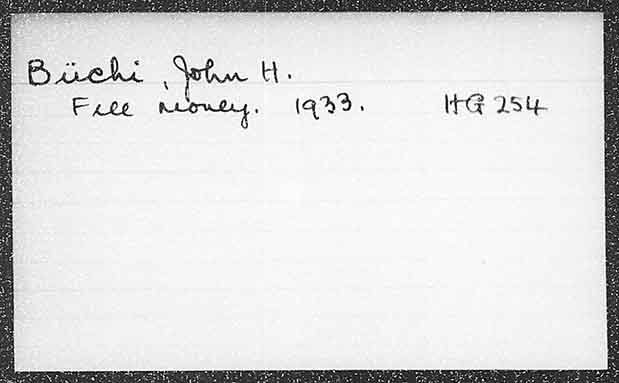 Büchi, John H.
Free Money. 1933. HG 254